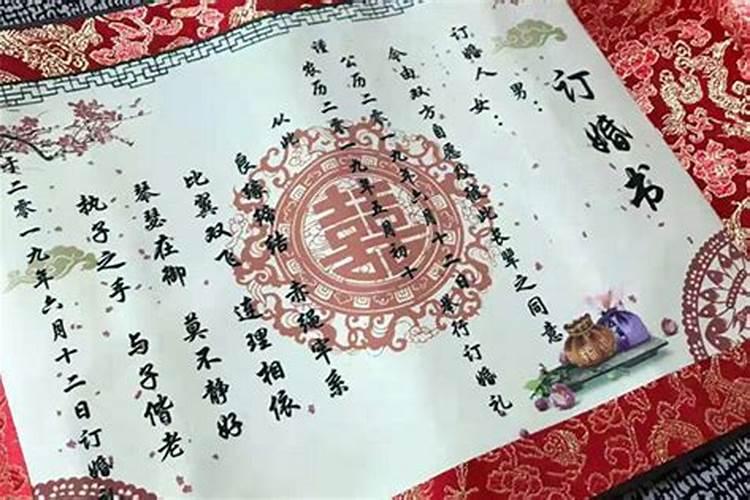 订婚书
订婚人 男：
女：
今由双方自愿及征此长辈之同意
公历二零一九年六月十二日举行订婚礼
谨 农历二零一九年五月初十
从此
良缘缔结 赤绳牢系
比翼双飞 连理相依
琴瑟在御 莫不静好
执子之手 与子偕老
于二零一九年六月十二日订婚